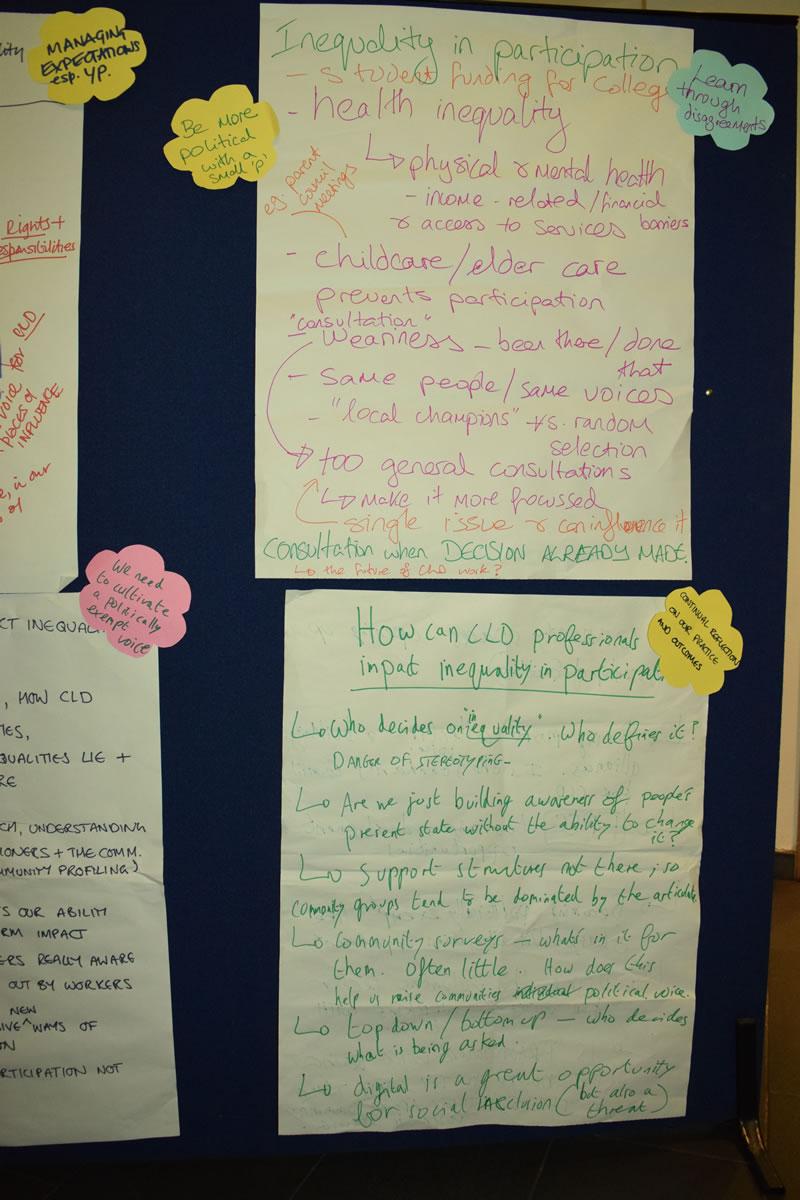 MANAGING
EXPECTATIONS
esp. YP.
Be More
political
with a
small 'p'
Learn
through
disagreements
Inequality in participation
- Student funding for College
- health inequality
↳ physical & mental health
- income - related/financial
barriers
& access to services
eg parent
council
meetings
- childcare/elder care
prevents participation
"consultation"
- Weariness - been there/done
that
- Same people/same voices
- "local champions" vs. random
selection
→ too general consultations
↳ Make it more focussed
single issue & can influence it
Consultation when DECISION ALREADY MADE.
↳ the future of CLD work?
Rights +
esponsibilities
voice for CLD
PLACES of
INFLUENCE
in our
of
We need
to cultivate
a politically
exempt voice
CT INEQUAL
, HOW CLD
IES,
QUALITIES LIE +
RE
CH, UNDERSTANDING
IONERS + THE COMM.
MMUNITY PROFILING)
S OUR ABILITY
RM IMPACT
ERS REALLY AWARE
OUT BY WORKERS
NEW
IVE ^ WAYS OF
ON
ARTICIPATION NOT
CONTINUAL REFLECTION
ON OUR PRACTICE
AND OUTCOMES
How can CLD professionals
impact inequality in participat
↳ Who decides on "inequality". Who defines it?
DANGER OF STEREOTYPING-
↳ Are we just building awareness of people's
present state without the ability to change
it?
↳ Support structures not there, so
community groups tend to be dominated by the articulate
↳ Community surveys - what's in it for
them. Often little. How does this
help us raise communities political voice.
↳ top down / bottom up - who decides
what is being asked.
↳ digital is a great opportunity
for social inclusion (but also a
threat)